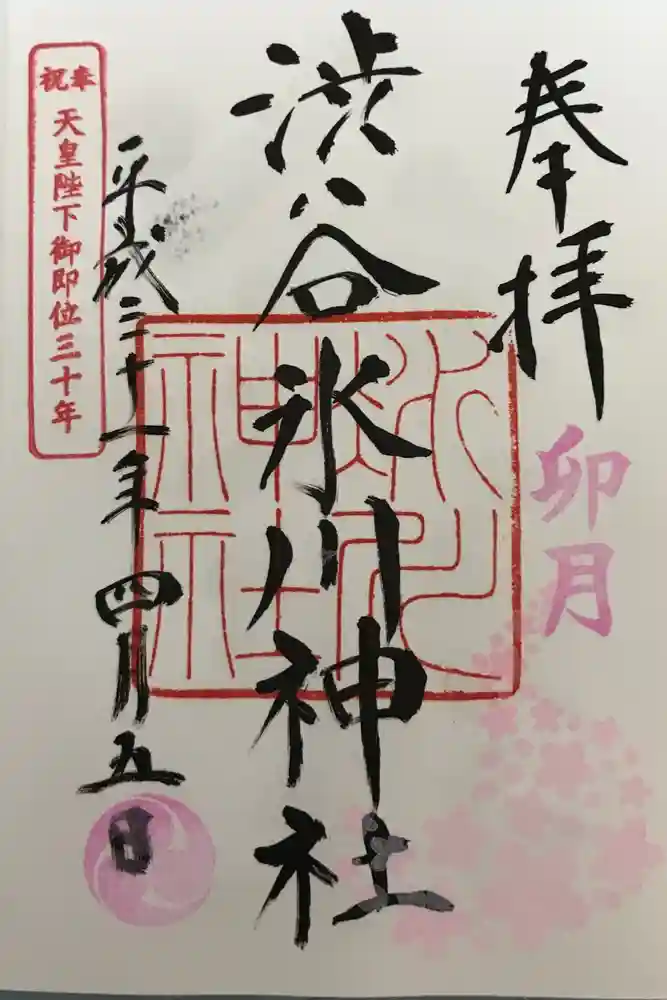 奉拝
卯月
渋谷氷川神社
平成三十一年四月五日
奉祝
天皇陛下御即位三十年